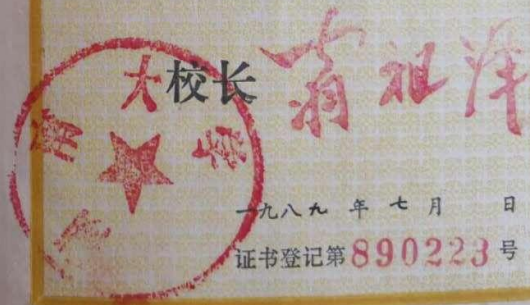 南大学
校长 翁祖泽
一九八九 年 七 月 日
证书登记第890223号